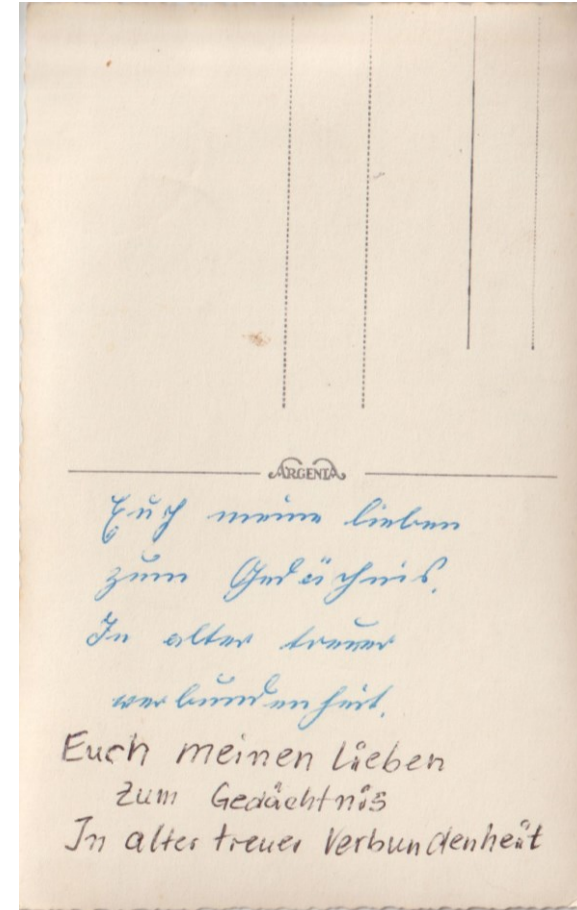 ARGENTA
Euch meine lieben
zum Gedächnis.
In alter treuer
verbundenheit.
Euch meinen Lieben
zum Gedächtnis
In alter treuer Verbundenheit